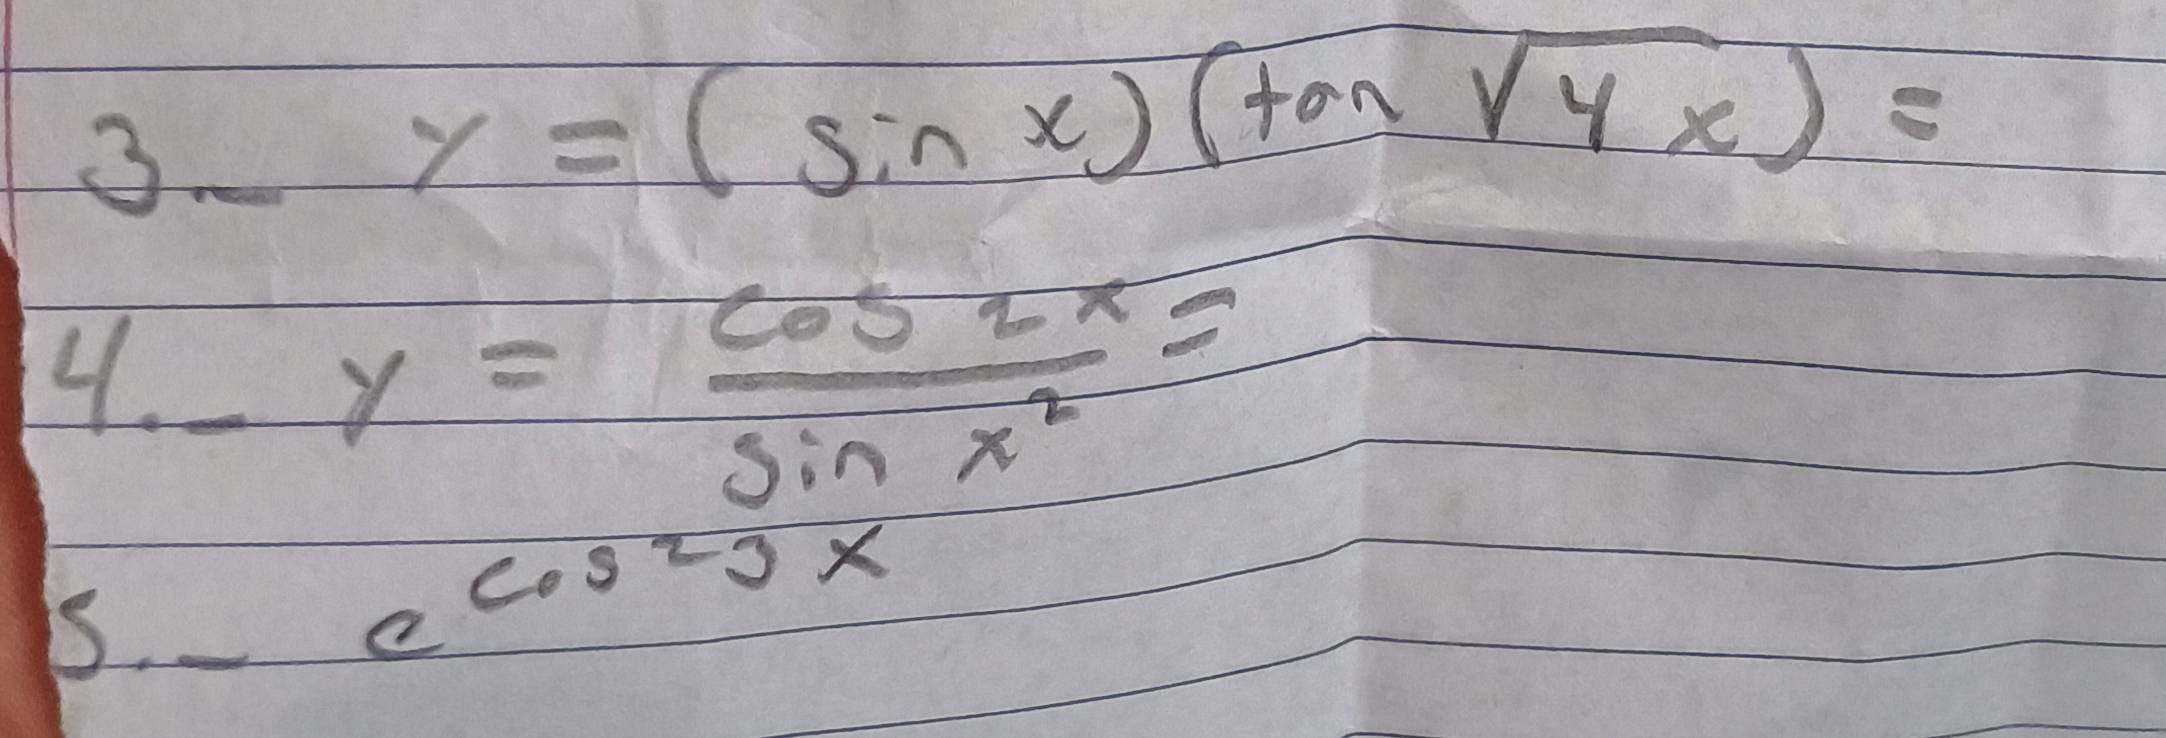 3._ y = (sin x)(tan √4x) =
4._ y = cos 2x / sin x² =
5._ e^cos²3x